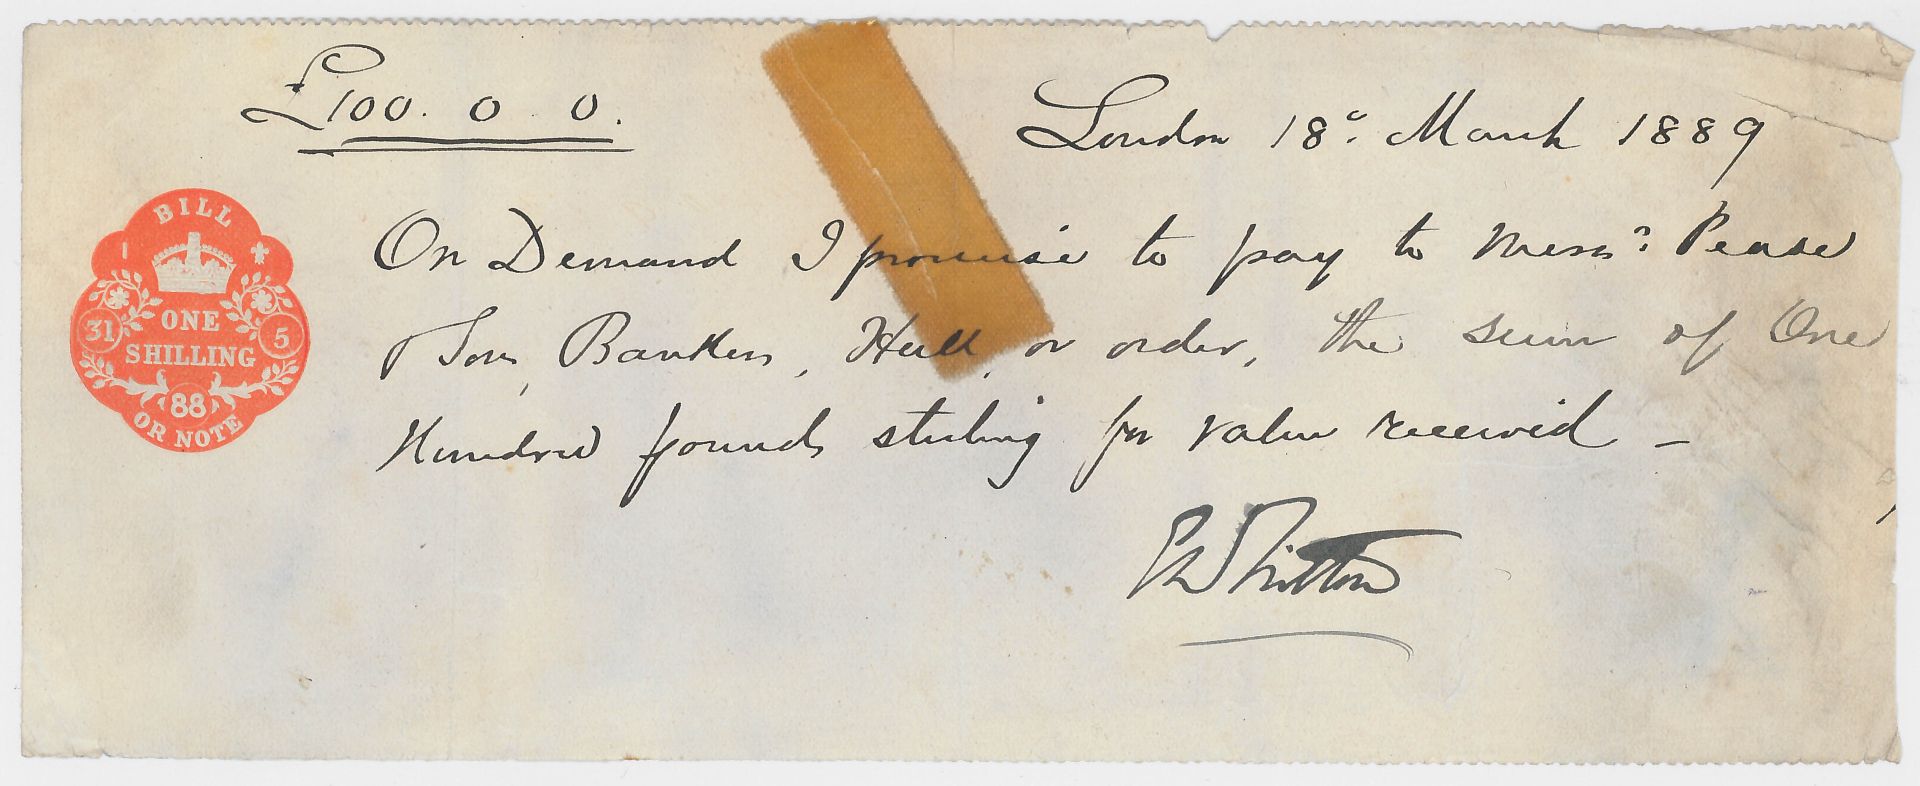 £100. 0 0.
London 18º. March 1889
BILL
1
ONE
31 5
SHILLING
88
OR NOTE
On Demand I promise to pay to Messrs. Pease
& Sons, Bankers, Hull, or order, the sum of One
Hundred pounds sterling for value received –